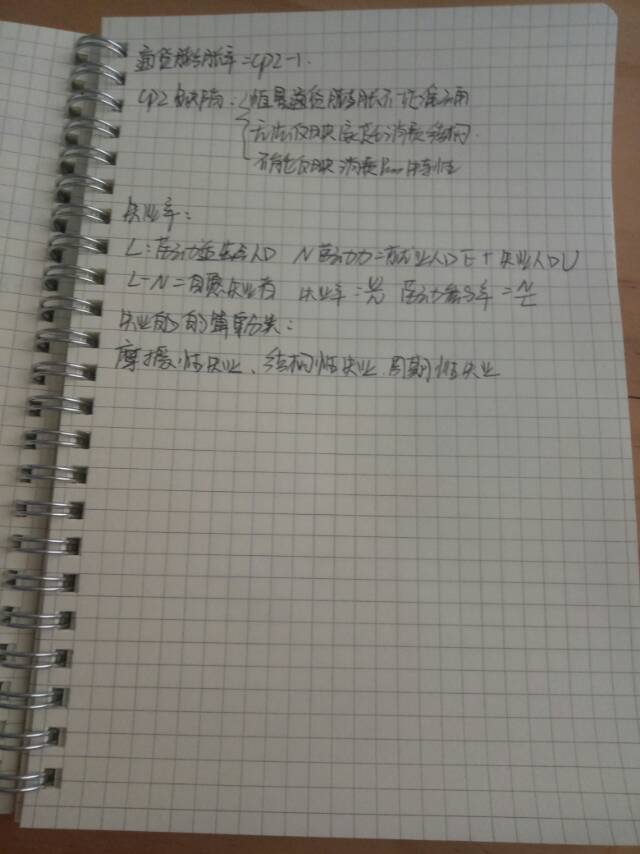 通货膨胀率=CPI-1.
CPI的缺陷:衡量通货膨胀不
无法反映家庭消费结构.
不能反映消费
失业率:
L:劳动适龄人口 N劳动力=就业人口E+失业人口U
L-N=自愿失业者 失业率=U/N 劳动参与率=N/L
失业的分类:
摩擦性失业、结构性失业.周期性失业